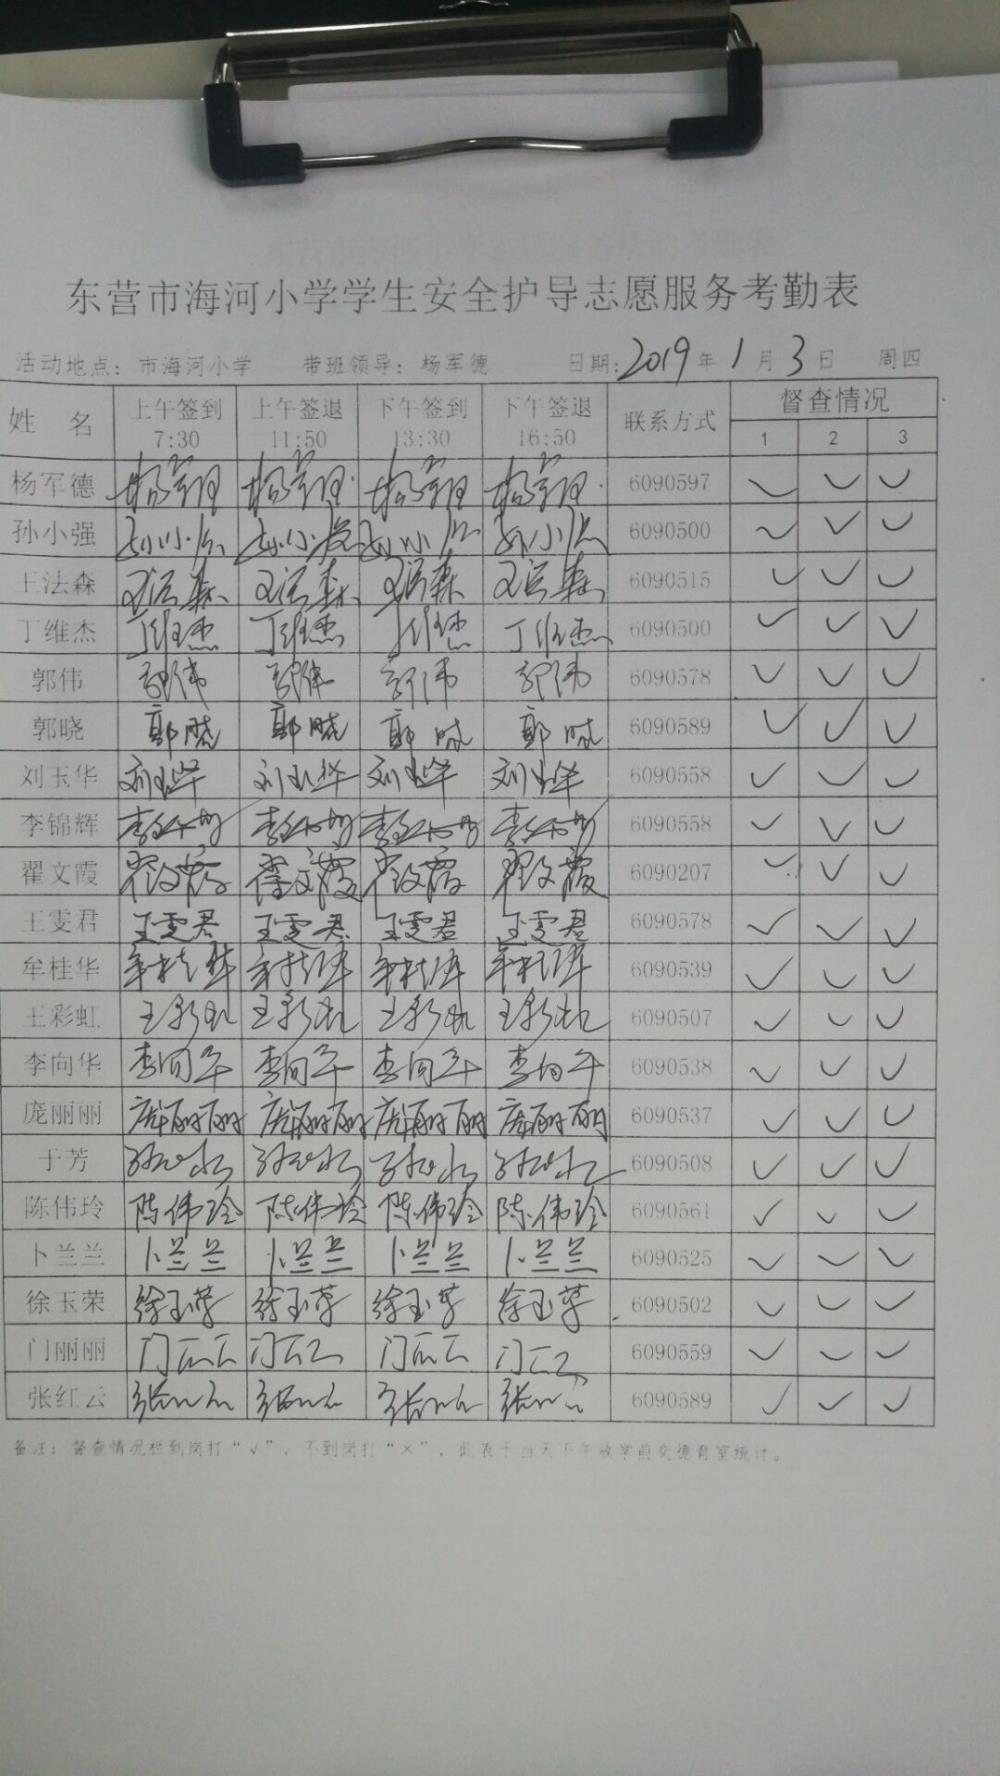 东营市海河小学学生安全护导志愿服务考勤表
活动地点：市海河小学 带班领导：杨军德 日期：2019年1月3日 周四
姓名 上午签到 7:30 上午签退 11:50 下午签到 13:30 下午签退 16:50 联系方式 督查情况 1 2 3
杨军德 6090597 ✓ ✓ ✓
孙小强 孙小强 孙小强 孙小强 孙小强 6090500 ✓ ✓ ✓
王法森 王法森 王法森 王法森 王法森 6090515 ✓ ✓ ✓
丁维杰 丁维杰 丁维杰 丁维杰 丁维杰 6090500 ✓ ✓ ✓
郭伟 郭伟 郭伟 郭伟 郭伟 6090578 ✓ ✓ ✓
郭晓 郭晓 郭晓 郭晓 郭晓 6090589 ✓ ✓ ✓
刘玉华 刘玉华 刘玉华 刘玉华 刘玉华 6090558 ✓ ✓ ✓
李锦辉 6090558 ✓ ✓ ✓
翟文霞 翟文霞 翟文霞 翟文霞 翟文霞 6090207 ✓ ✓ ✓
王雯君 王雯君 王雯君 王雯君 王雯君 6090578 ✓ ✓ ✓
牟桂华 牟桂华 牟桂华 牟桂华 牟桂华 6090539 ✓ ✓ ✓
王彩虹 王彩虹 王彩虹 王彩虹 王彩虹 6090507 ✓ ✓ ✓
李向华 李向华 李向华 李向华 李向华 6090538 ✓ ✓ ✓
庞丽丽 庞丽丽 庞丽丽 庞丽丽 庞丽丽 6090537 ✓ ✓ ✓
于芳 6090508 ✓ ✓ ✓
陈伟玲 陈伟玲 陈伟玲 陈伟玲 陈伟玲 6090561 ✓ ✓ ✓
卜兰兰 卜兰兰 卜兰兰 卜兰兰 卜兰兰 6090525 ✓ ✓ ✓
徐玉荣 徐玉荣 徐玉荣 徐玉荣 徐玉荣 6090502 ✓ ✓ ✓
门丽丽 门丽丽 门丽丽 门丽丽 门丽丽 6090559 ✓ ✓ ✓
张红云 张红云 张红云 张红云 张红云 6090589 ✓ ✓ ✓
备注：督查情况栏到岗打“√”，不到岗打“×”，此表于当天下午放学前交德育室统计。